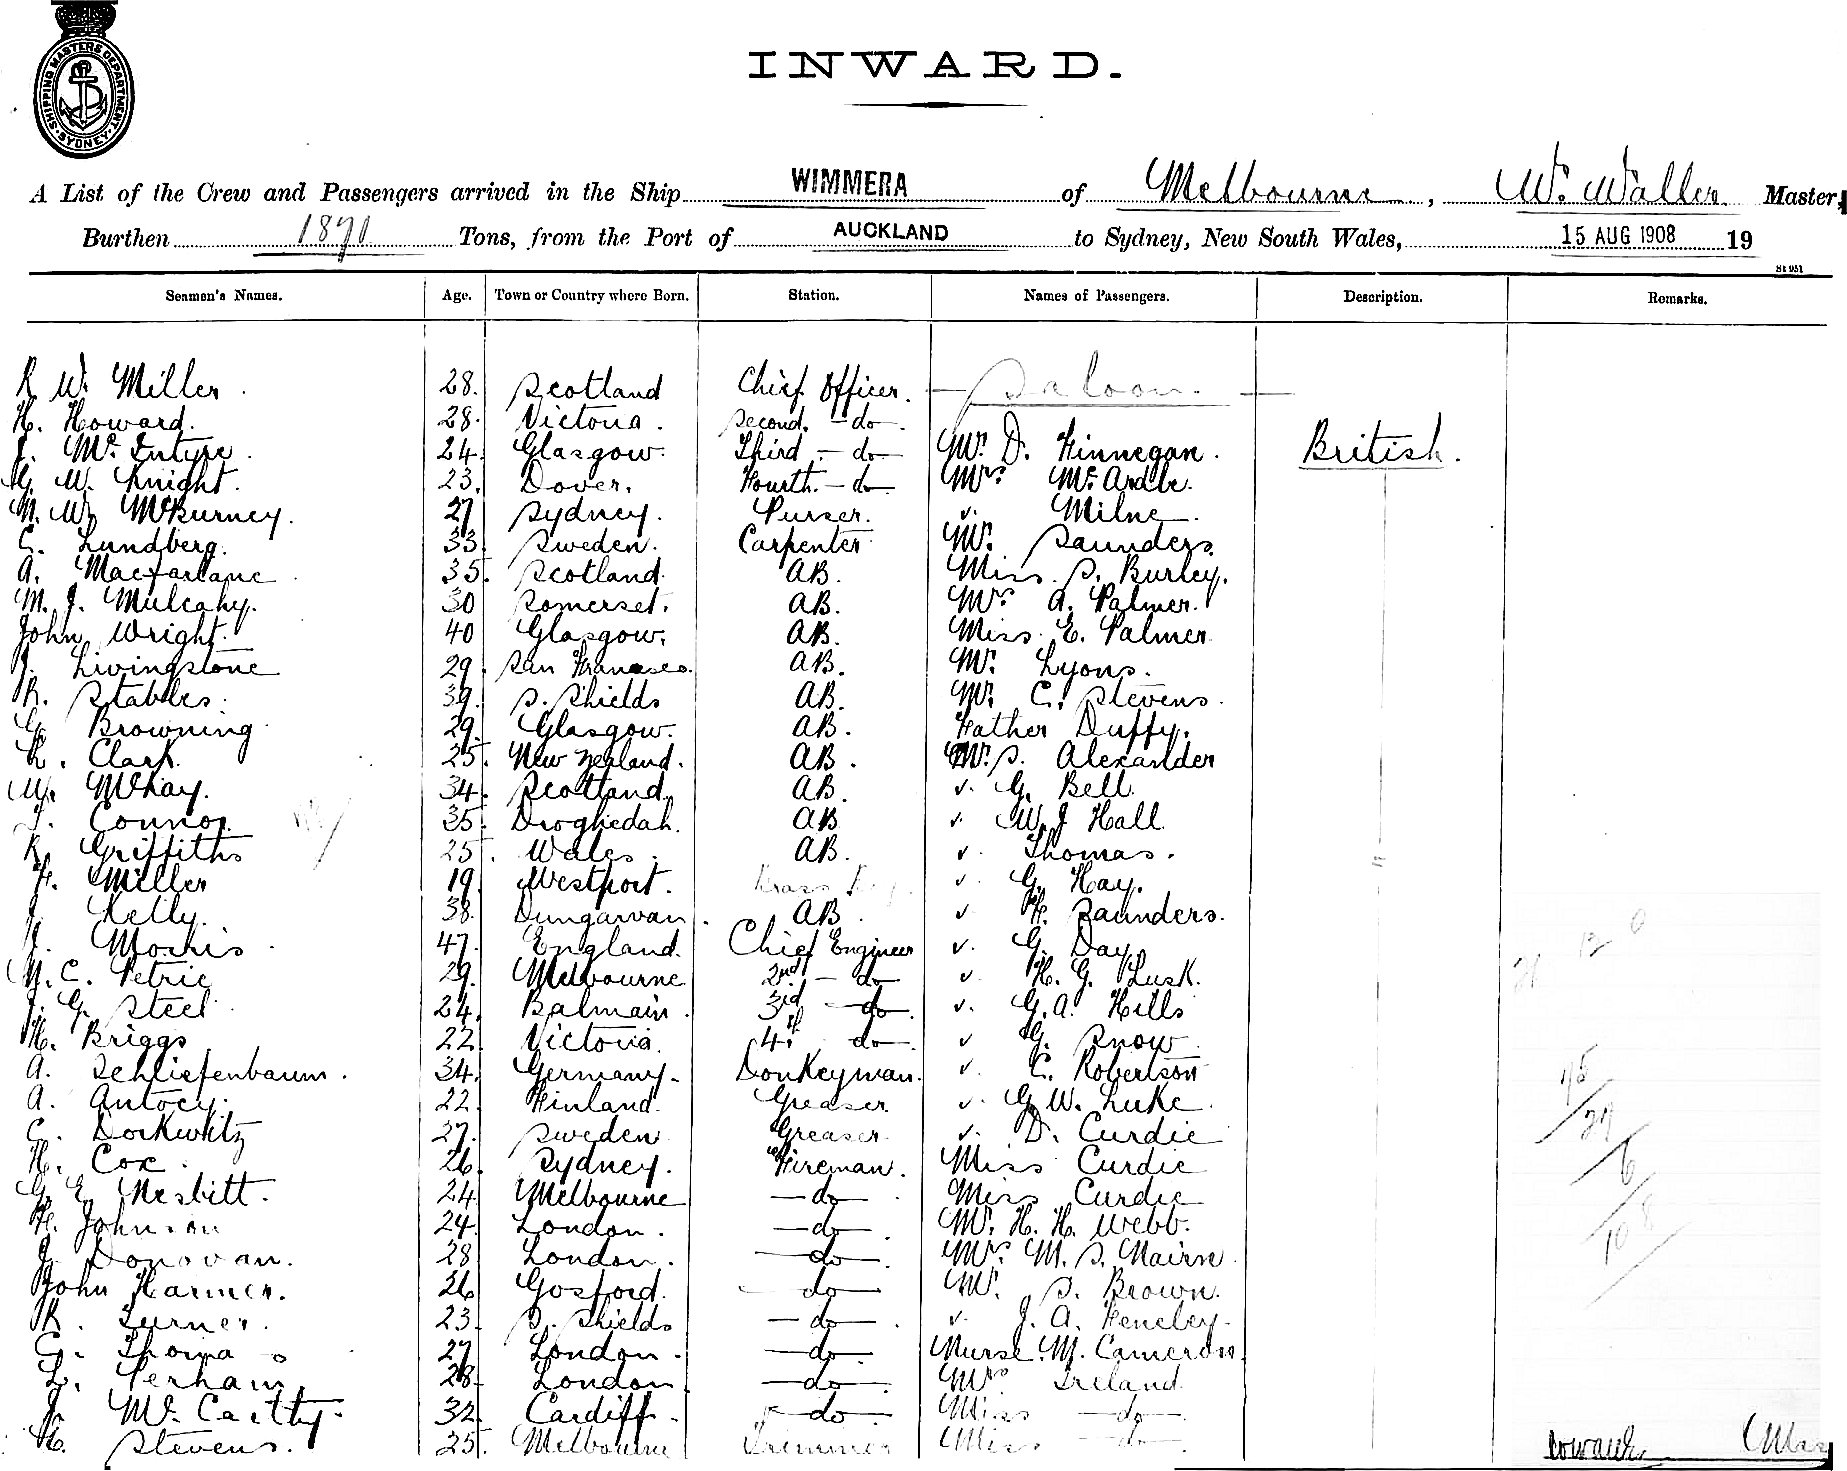 SHIPPING MASTERS DEPARTMENT. SYDNEY.
INWARD.
A List of the Crew and Passengers arrived in the Ship WIMMERA of Melbourne, W. Waller Master,
Burthen 1891 Tons, from the Port of AUCKLAND to Sydney, New South Wales, 15 AUG 1908 19
St 951
Seamen's Names. Age. Town or Country where Born. Station. Names of Passengers. Description. Remarks.
R W. Miller. 28. Scotland Chief Officer. Saloon.
H. Howard. 28. Victoria. Second. -do-
J. McIntyre. 24. Glasgow. Third. -do- Mr. D. Finnegan. British.
G. W. Knight. 23. Dover. Fourth. -do- Mrs McArdle.
N. W. McBurney. 27 Sydney. Purser. " Milne
C. Lundberg. 33 Sweden. Carpenter Mr. Saunders.
A. Macfarlane 35. Scotland. AB. Miss. S. Burley.
M. J. Mulcahy. 30 Somerset. AB. Mrs A. Palmer.
John Wright. 40 Glasgow. AB. Miss. E. Palmer
J. Livingstone 29. San Francisco. AB. Mr. Lyons.
R. Stables. 39. S. Shields AB. Mr. C. Stevens.
G. Browning 29. Glasgow. AB. Father Duffy.
R. Clark. 25. New Zealand. AB. Mr. S. Alexander
W. McKay. 34. Scotland. AB. " G. Bell.
J. Connor. 35. Droghedah. AB " W. J Hall
R. Griffiths 25. Wales. AB. " Thomas.
F. Miller 19. Westport. " G. Hay.
J. Kelly. 38. Dungarvan. AB. " F. Saunders.
J. Morris 47. England. Chief Engineer " G. Day
N. C. Petrie 29. Melbourne 2nd - do " H. G. Lusk.
J. G. Steel 24. Balmain. 3rd - do. " G. A. Hills
H. Briggs 22. Victoria. 4th do. " G. Snow
A. Schliefenbaum. 34. Germany. Donkeyman. " C. Robertson
A. Antocy. 22. Finland. Greaser " G. W. Luke.
C. Dorkwitz 27. Sweden Greaser " D. Curdie
H. Cox. 26. Sydney. Fireman. Miss Curdie
G. E. Nesbitt. 24. Melbourne -do- Miss Curdie
F. Johnson 24. London. -do- Mr. H. H. Webb.
J. Donovan. 28 London. -do- Mrs M. S. Nairn
John Harmer. 26 Gosford. -do- Mr. S. Brown.
R. Turner. 23. S. Shields -do- " J. A. Feneley.
G. Thomas 27. London. -do- Nurse. M. Cameron
L. Perham 28. London -do- Mrs Ireland
J. McCarthy. 32. Cardiff. -do- Miss -do-
H. Stevens. 25. Melbourne Trimmer Miss -do-